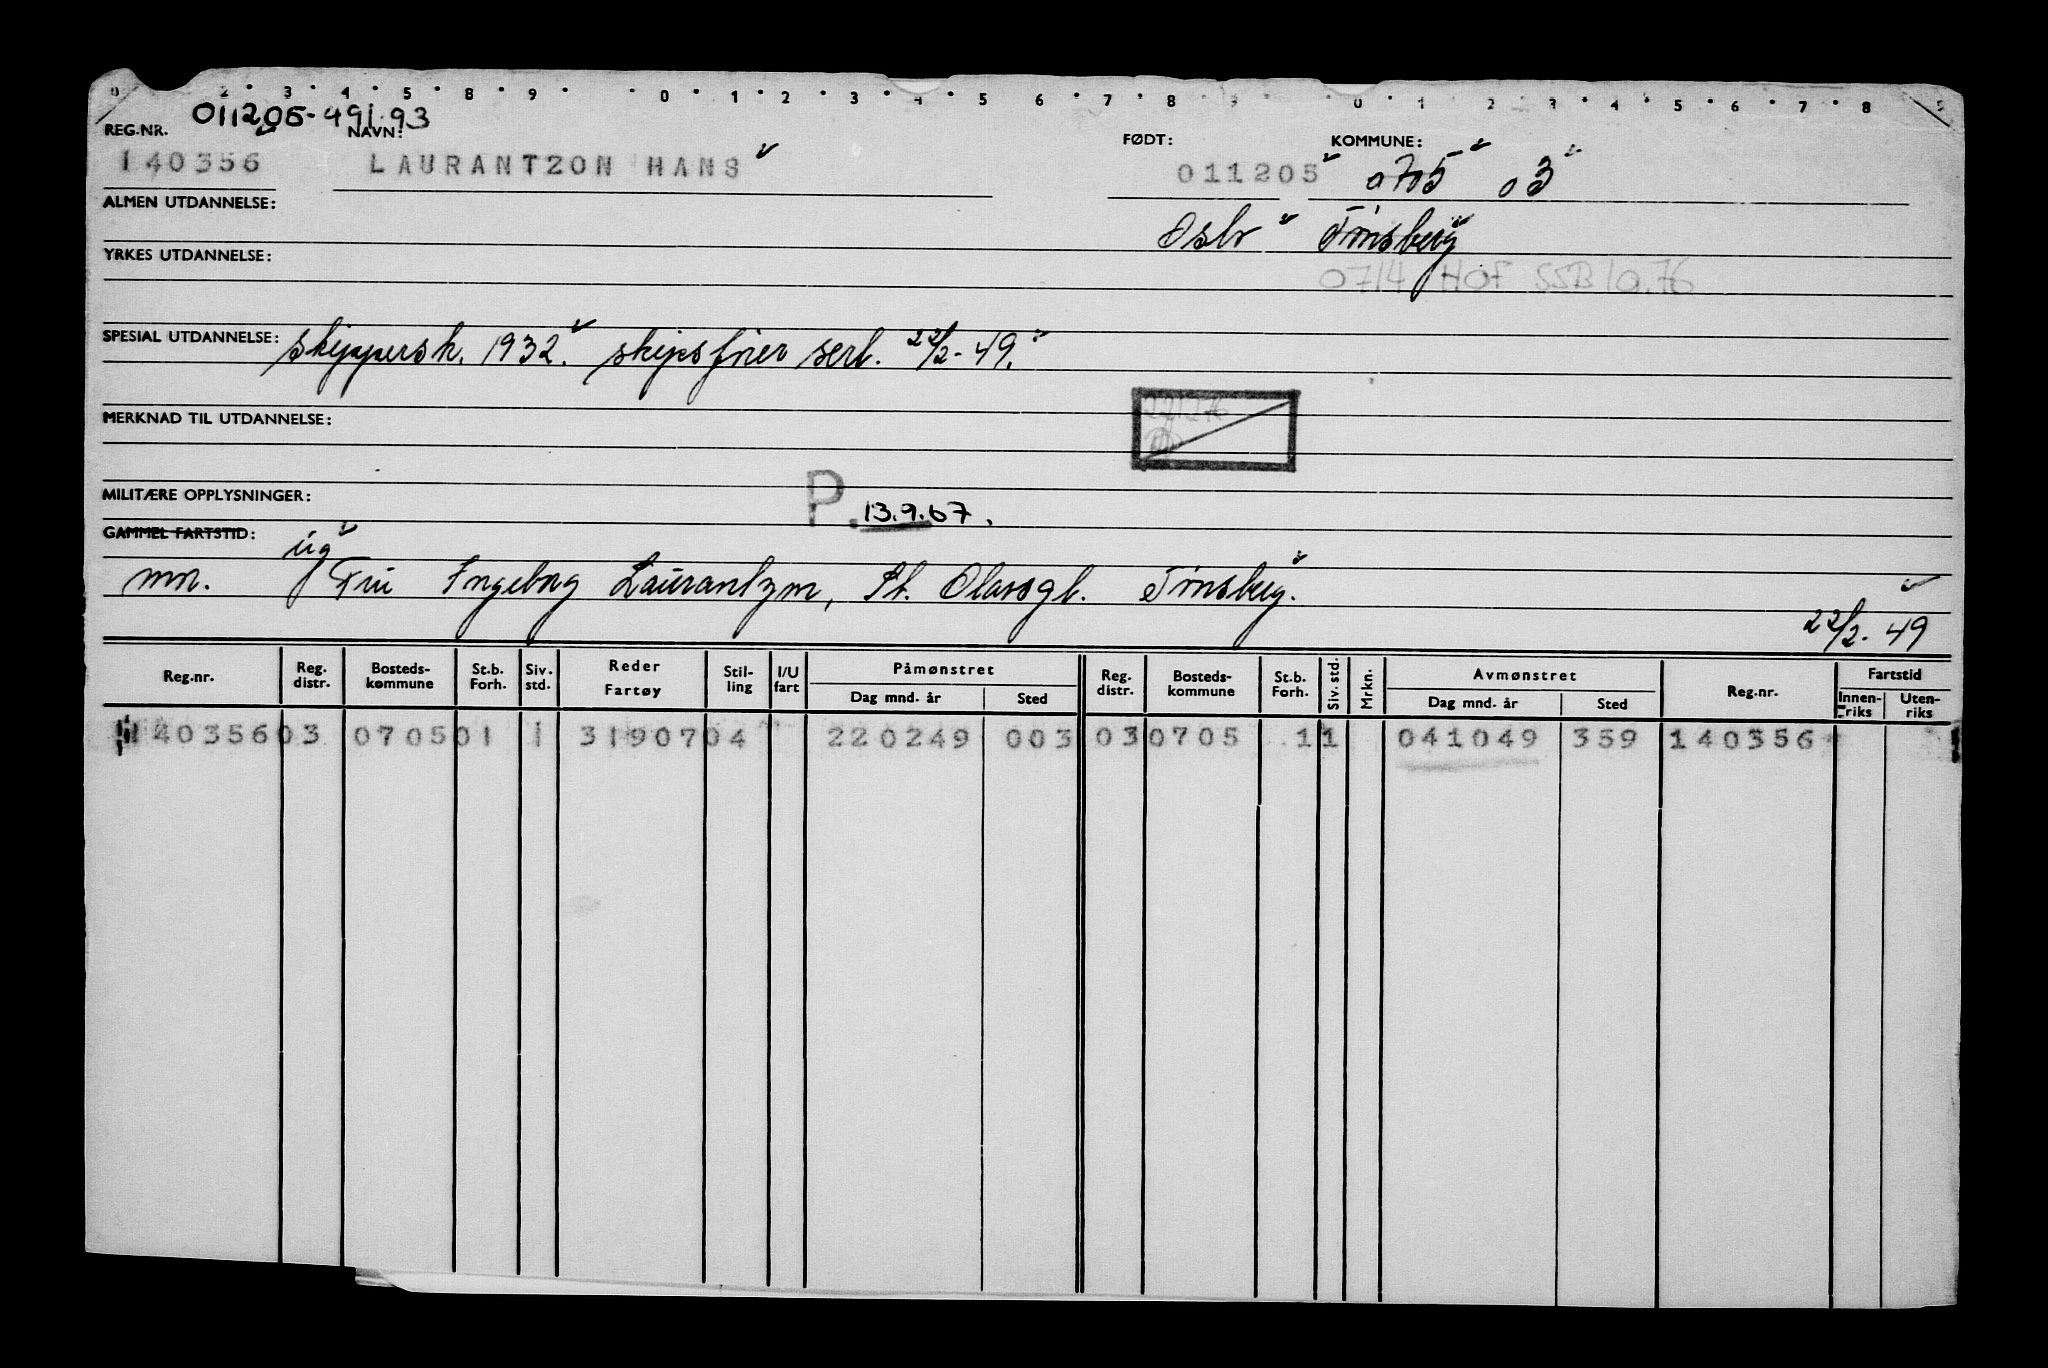 011205-491.93
REG.NR. NAVN: FØDT: KOMMUNE:
140356 LAURANTZON HANS 011205 0705 03
ALMEN UTDANNELSE:
Oslo Tønsberg
YRKES UTDANNELSE:
0714 HOF SSB 10.76
SPESIAL UTDANNELSE: skippersk. 1932. skipsfører serl. 22/2-49.
MERKNAD TIL UTDANNELSE:
MILITÆRE OPPLYSNINGER:
P. 13.9.67.
GAMMEL FARTSTID:
ug
mn. Fru Ingeborg Laurantzon, St. Olavsgt. Tønsberg.
22/2-49
Reg.nr. Reg. distr. Bosteds-kommune St.b. Forh. Siv. std. Reder Fartøy Stil-ling I/U fart Påmønstret Dag mnd. år Sted Reg. distr. Bosteds-kommune St.b. Forh. Siv. std. Mrkn. Avmønstret Dag mnd. år Sted Reg.nr. Fartstid Innen-riks Uten-riks
140356 03 0705 01 1 31907 04 220249 003 03 0705 11 041049 359 140356